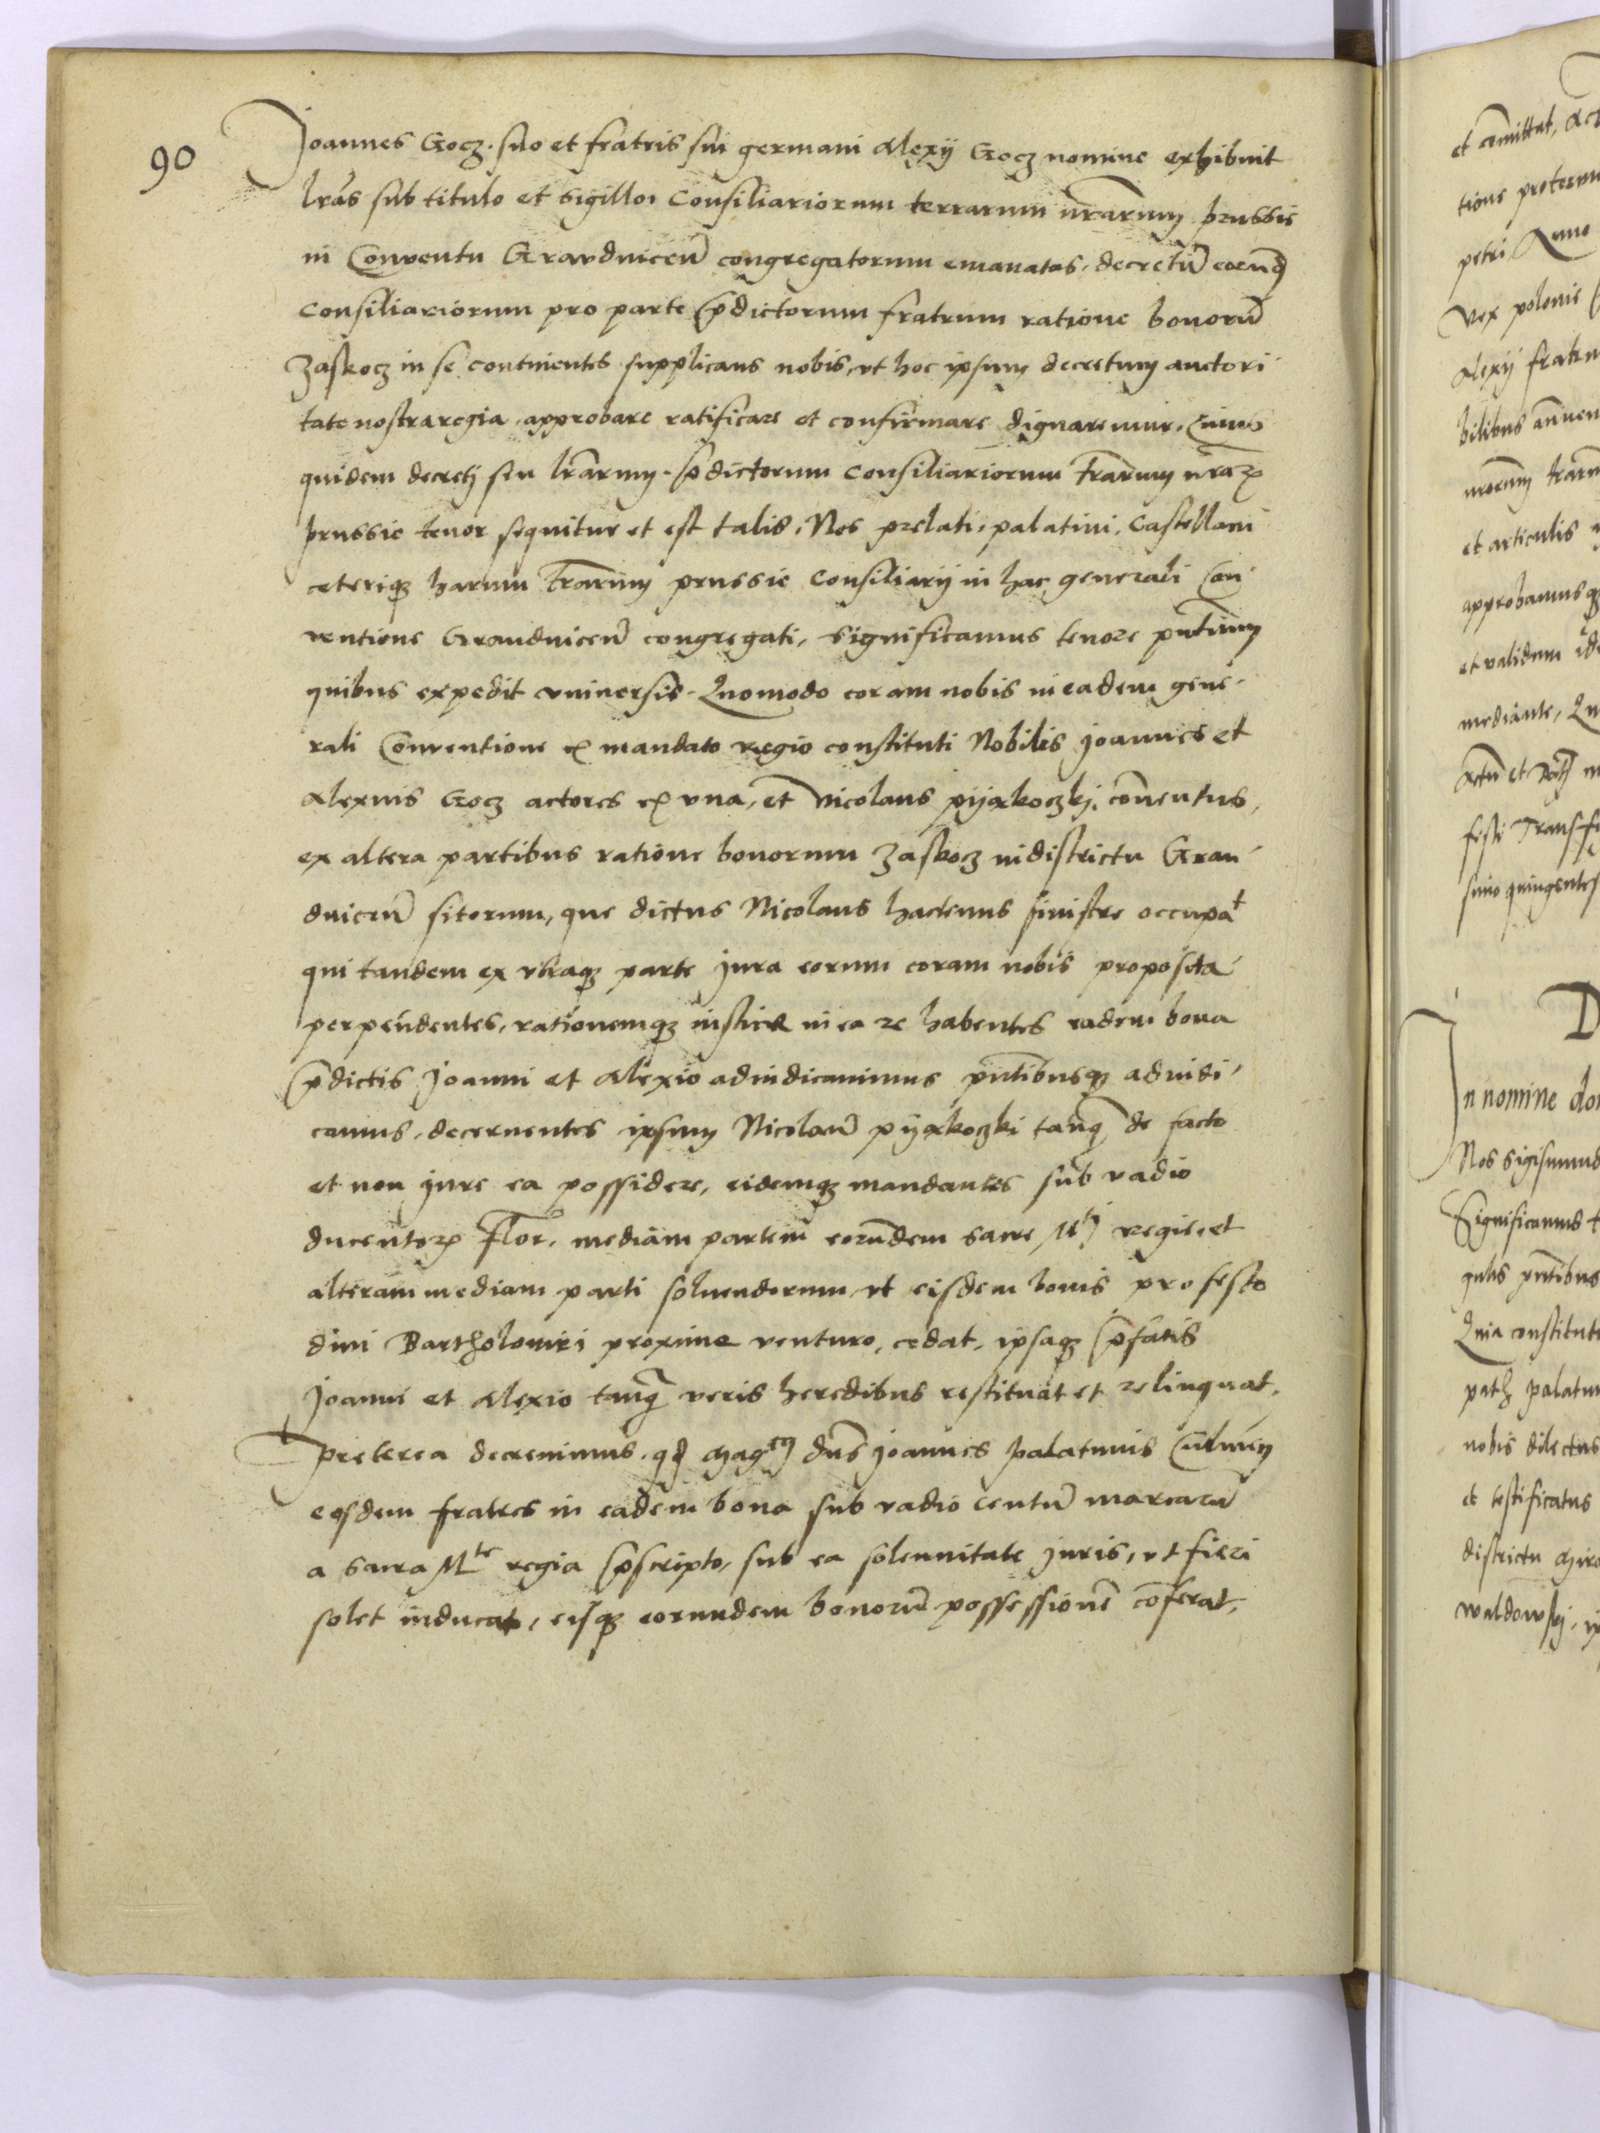 90
Joannes Gocz. suo et fratris sui germani Alexÿ Gocz nomine exhibuit
lr̃as sub titulo et sigillo Consiliariorum terrarum nr̃arum prussie
in Conventu Graudnicen̄ congregatorum emanatas. decretū eorund̄
Consiliariorum pro parte p̄dictorum fratrum ratione bonorū
Zaskocz in se continentes supplicans nobis, vt hoc ipsum decretum auctori
tate nostra regia approbare ratificare et confirmare dignaremur. Cuius
quidem decretj seu lr̃arum p̄dictorum Consiliariorum tr̃arum nr̃aꝝ
prussie tenor sequitur et est talis. Nos prelati, palatini, Castellani
ceteriqꝫ harum tr̃arum prussie Consiliarij in hac generali Con
ventione Graudnicen̄ congregati, significamus tenore pn̄tium
quibus expedit vniuersis. Quomodo coram nobis in eadem gene-
rali Conventione ex mandato regio constituti Nobiles Joannes et
Alexius Gocz actores ex vna, et Nicolaus pijaxkoczkj conuentus,
ex altera partibus ratione bonorum Zaskocz in districtu Grau
dnicen̄ sitorum, que dictus Nicolaus hactenus sinistre occupat
qui tandem ex vtraqꝫ parte jura eorum coram nobis proposita
perpendentes, rationemqꝫ iusticie in ea re habentes eadem bona
p̄dictis Joanni et Alexio adiudicauimus pn̄tibusqꝫ adiudi-
camus, decernentes ipsum Nicolaū pijaxkoczki tanq̄ de facto
et non jure ea possidere, eidemqꝫ mandantes sub vadio
ducentoꝝ flor. mediam partem eorundem sacre Mtj regie, et
alteram mediam parti soluendorum, vt eisdem bonis pro festo
diui Bartholomei proxime venturo, cedat, ipsaqꝫ p̄fatis
Joanni et Alexio tanq̄ veris heredibus restituat et relinquat.
Preterea decreuimus. qđ Magcus dn̄s Joannes palatinus Culmen̄
eosdem fratres in eadem bona sub vadio centū marcarū
a sacra Mte regia p̄scripto, sub ea solennitate juris, vt fieri
solet inducat, eisqꝫ eorundem bonorū possessionē cōferat,
et committat, Act
petri Anno
Rex polonie
Alexÿ fratrum
et articulis
approbamusqꝫ
et validum
mediante, Qu
festi Transf
simo quingentes
D
In nomine do
Nos Sigismund
Significamus t
quibus pn̄tibus
Quia constitut
palatin
nobis dilectus
et testificatus
districtu
waldowskj,